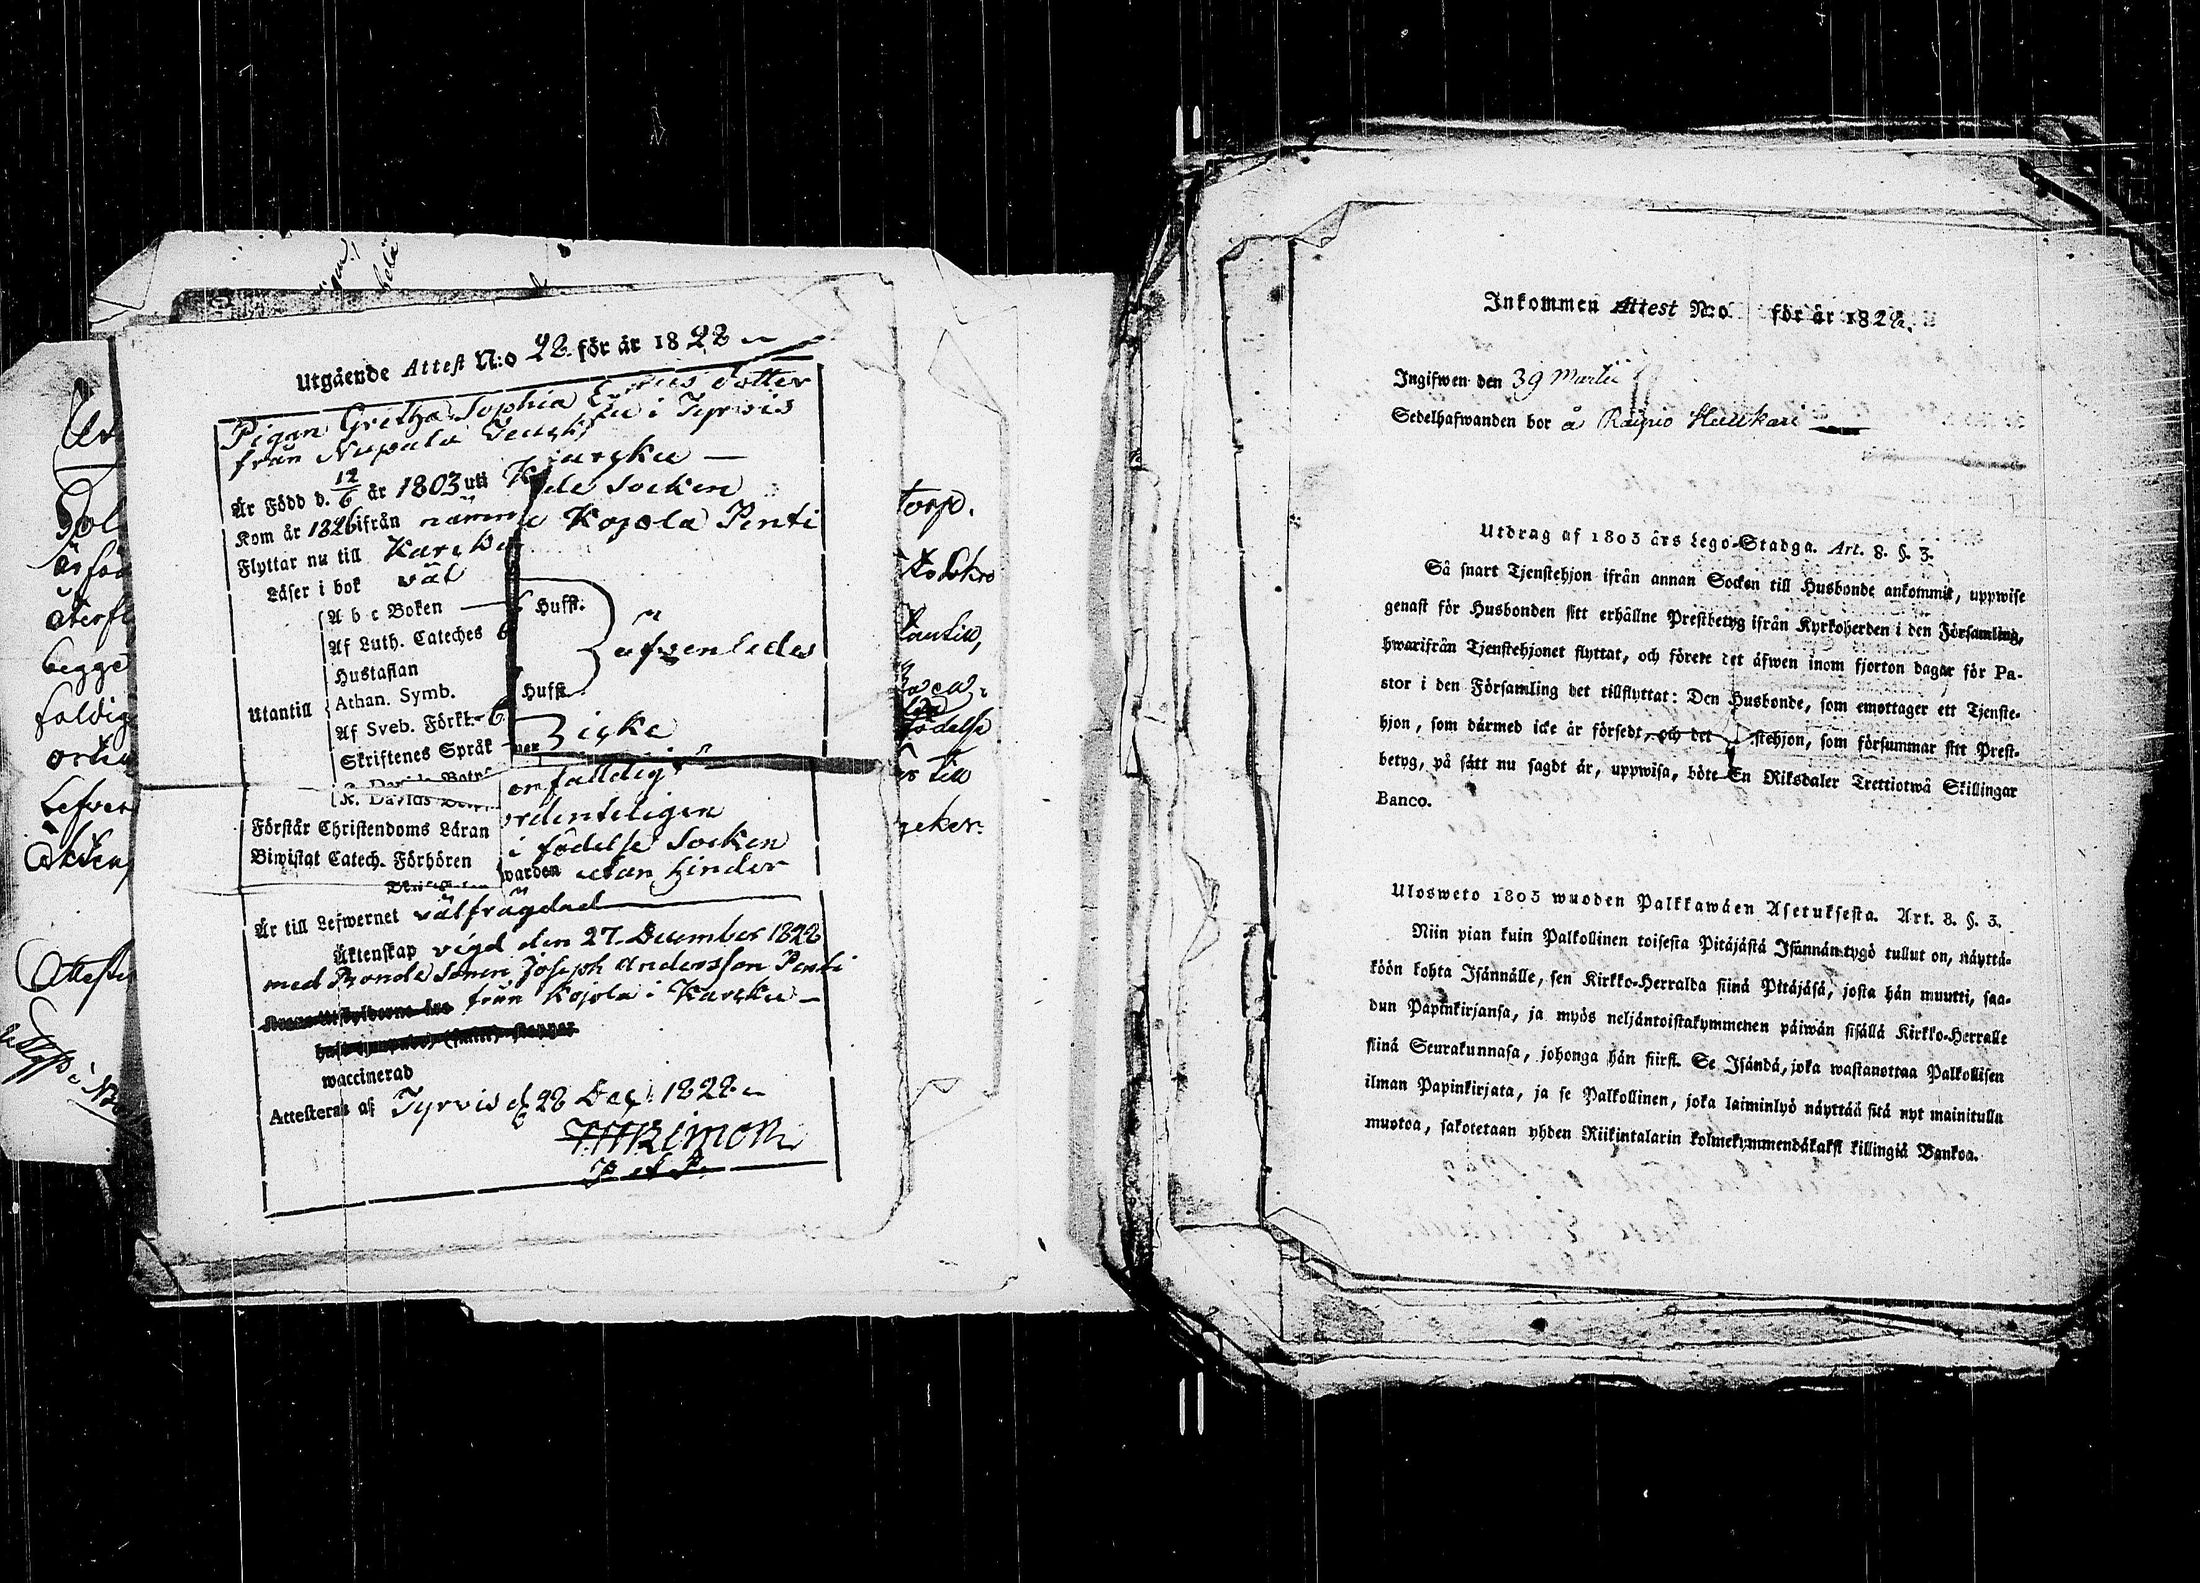 Utgående Attest N:o 92 för år 1828
Pigan Gretha Sophia dotter
från Nupala i Tyrvis
Är Född d. 12/6 år 1803 uti Karcku
Kom år 1826 ifrån nämnde Socken
Flyttar nu till Karcku Kojola Penti
Läser i bok väl
A b c Boken
Af Luth. Cateches 6 Hufst.
Hustaflan
äfvenledes
Athan. Symb.
Utantill
Hufst.
Af Sveb. Förkl. 6
Skriftenes Språk
icke
K. Davids
enfalldigt
Förstår Christendoms Läran ordenteligen
Biwistat Catech. Förhören i födelse Socken
warden utan hinder
Är till Lefwernet välfrägdad
Äktenskap vigd den 27 December 1828
med Bonde Sonen Joseph Andersson Penti
från Kojola i Karcku
waccinerad
Attesteras af Tyrvis d. 28 Dec. 1828
torp.
födelse
till
begge
Lefver
Inkommen Attest N:o för år 182
Ingifwen den 39 Martii
Sedelhafwanden bor å
Utdrag af 1805 års Lego-Stadga. Art. 8. §. 3.
Så snart Tjenstehjon ifrån annan Socken till Husbonde ankommit, uppwise
genast för Husbonden sitt erhållne Prestbetyg ifrån Kyrkoherden i den Församling,
hwarifrån Tjenstehjonet flyttat, och förete det äfwen inom fjorton dagar för Pa-
stor i den Församling det tillflyttat: Den Husbonde, som emottager ett Tjenste-
hjon, som därmed icke är försedt, och det stehjon, som försummar sitt Prest-
betyg, på sätt nu sagdt är, uppwisa, böte En Riksdaler Trettiotwå Skillingar
Banco.
Ulosweto 1805 wuoden Palkkawäen Asetuksesta. Art. 8. §. 3.
Niin pian kuin Palkollinen toisesta Pitäjästä Isännän tygö tullut on, näyttä-
köön kohta Isännälle, sen Kirkko-Herralda siinä Pitäjäsä, josta hän muutti, saa-
dun Papinkirjansa, ja myös neljäntoistakymmenen päiwän sisällä Kirkko-Herralle
siinä Seurakunnasa, johonga hän siirsi. Se Isändä, joka wastanottaa Palkollisen
ilman Papinkirjata, ja se Palkollinen, joka laiminlyö näyttää sitä nyt mainitulla
muotoa, sakotetaan yhden Riikintalarin kolmekymmendäkaksi killingiä Bankoa.